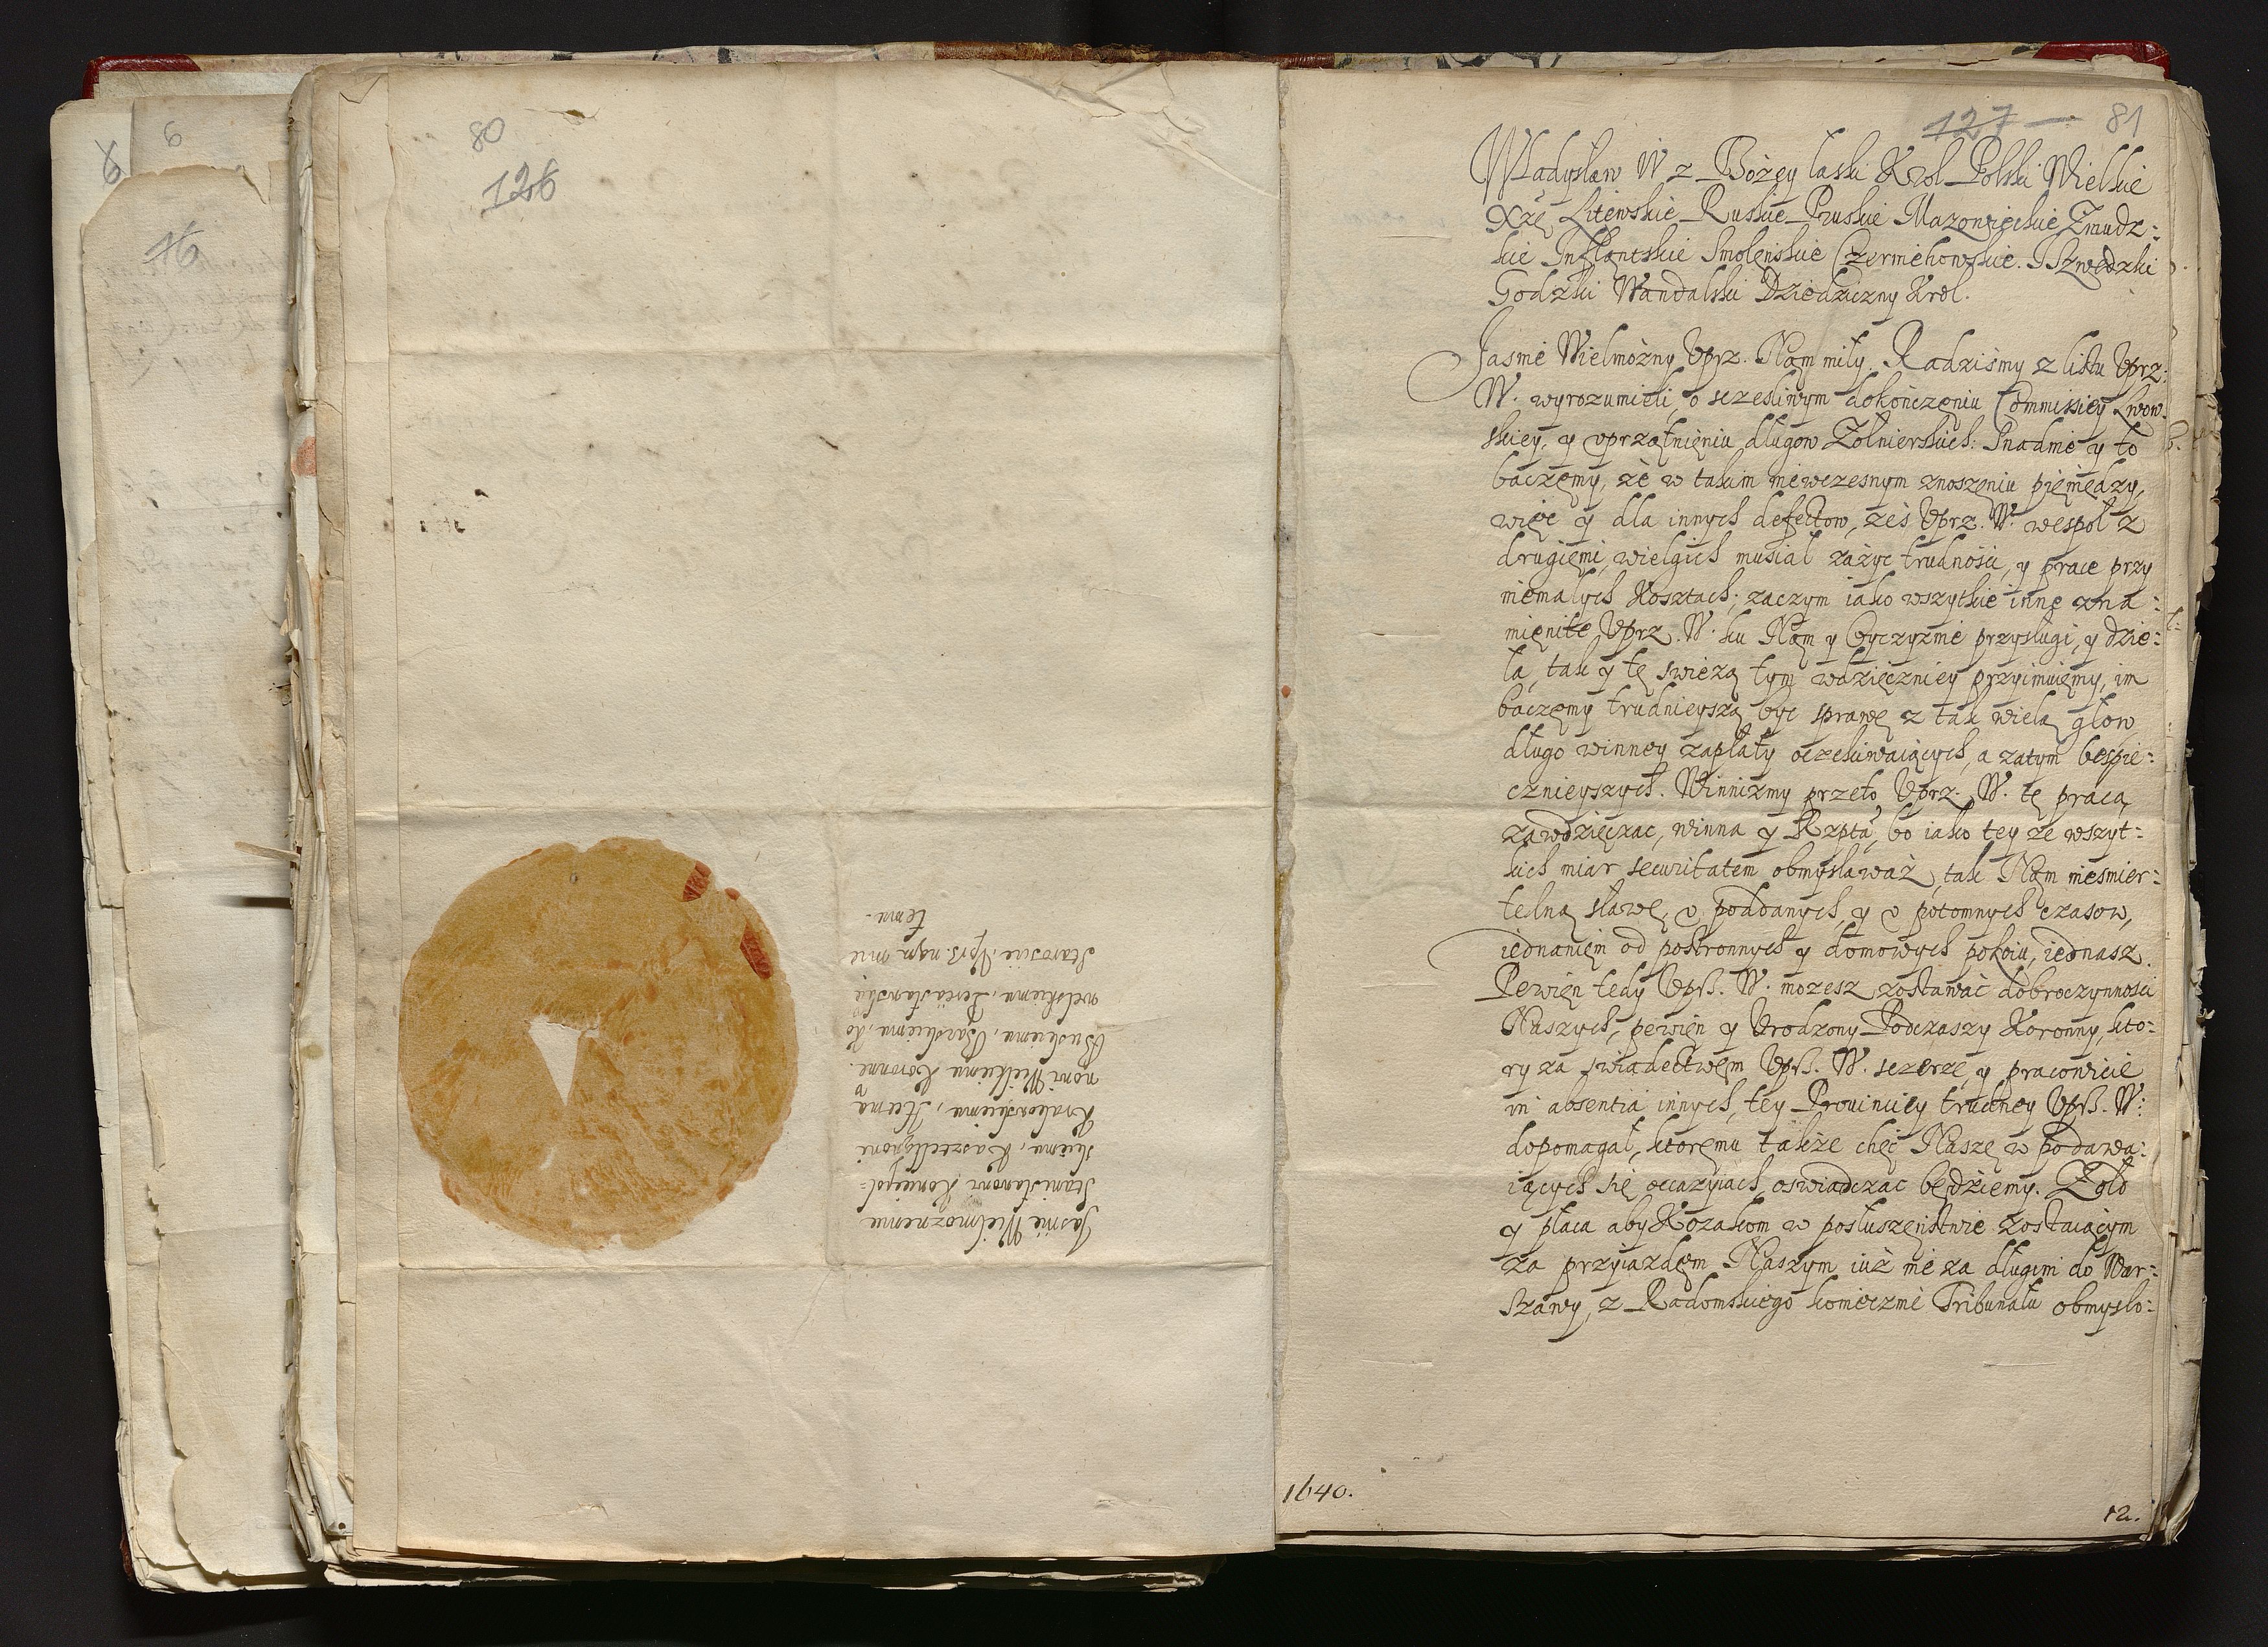 6
6
16
80
126
Jasnie Wielmoznemu
Stanisławowi Koniecpol=
skiemu, Kasztellanowi
Krakowskiemu, Hetma
nowi Wielkiemu Koronne.
Buskiemu, Barskiemu, Ko
welskiemu, Pereasławskie
Staroscie, Uprz. nam mie
temu.
127 — 81
Władysław IV z Bożey łaski Krol Polski Wielkie
Xżę Litewskie Ruskie Pruskie Mazowieckie Żmudz=
kie Inflantskie Smolenskie Czerniehowskie. I Szwedzki
Godzki Wandalski Dziedziczny Krol.
Jasnie Wielmożny Uprz. Nam miły. Radziśmy z listu Uprz:
W. wyrozumieli, o sczesliwym dokończeniu Commissiey Lwow
skiey, y uprzątnieniu długow Żołnierskich: Snadnie y to
baczemy, że w takim niewczesnym znoszeniu pieniędzy,
więc y dla innych defectow, żeś Uprz. W. wespoł z
drugiemi, wielgich musiał zażyc trudności, y prace przy
niemałych Kosztach; zaczym iako wszytkie inne zna=
mienite Uprz. W. ku Nam y Oyczyznie przysługi, y dzie=
ła, tak y tę swieżą tym wdzięczniey przyimuiemy, im
baczemy trudnieyszą byc sprawę z tak wielą głow
długo winney zapłaty oczekiwaiących, a zatym bespie=
cznieyszych. Winnizmy przeto Uprz. W. tę pracą
zawdzięczac, winna y Rzpta, bo iako tey ze wszyt=
kich miar securitatem obmyslawasz, tak Nam niesmier=
telną sławę, v poddanych, y v potomnych czasow,
iednaniem od postronnych y domowych pokoiu, iednasz.
Pewien tedy Uprz. W. mozesz zostawać dobroczynności
Naszych, pewien y Urodzony Podczaszy Koronny, kto=
ry za swiadectwem Uprz. W. sczerze, y pracowicie
in absentia innych, tey Prouinciey trudney Uprz. W:
dopomagał, ktoremu także chęć Naszę w podawa=
iących się occazyiach oswiadczac będziemy. Żołd
y płaca aby Kozakom w posłuszeństwie zostaiącym
za przyiazdem Naszym iuż nie za długim do War=
szawy, z Radomskiego koniecznie Tribunału obmyslo=
1640.
12.